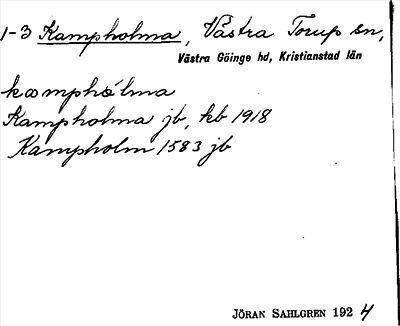 1-3 Kampholma, Västra Torup sn,
Västra Göinge hd, Kristianstad län
Kampholma jb, kb 1918
Kampholm 1583 jb
JÖRAN SAHLGREN 1924